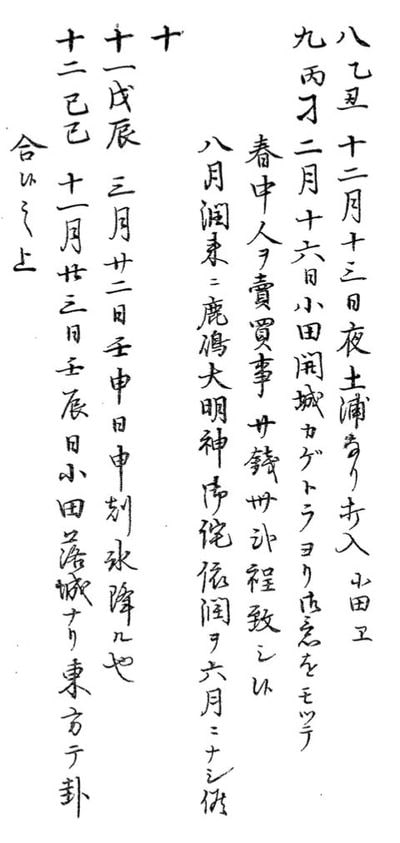 八 乙丑 十二月十三日夜土浦ゟり打入 小田ヱ
九 丙刁 二月十六日小田開城カゲトラヨリ御意をモッテ
春中人ヲ賣買事廿銭卅弐程致シ候
八月潤来ニ鹿嶋大明神御侘依潤ヲ六月ニナシ候
十
十一戊辰 三月廿二日壬申日申剋氷降ル也
十二己巳 十一月廿三日壬辰日小田落城ナリ東方テ卦
合候之上